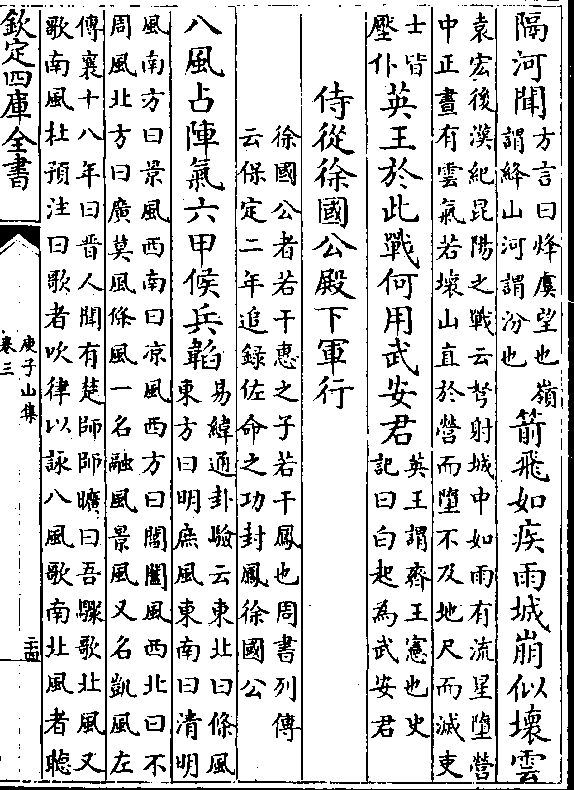 隔河聞方言曰烽虞望也嶺謂絳山河謂汾也箭飛如疾雨城崩似壞雲
袁宏後漢紀昆陽之戰云弩射城中如雨有流星墮營
中正晝有雲氣若壞山直於營而墮不及地尺而滅吏
士皆壓仆英王於此戰何用武安君英王謂齊王憲也史記曰白起為武安君
侍從徐國公殿下軍行
徐國公者若干惠之子若干鳳也周書列傳
云保定二年追録佐命之功封鳳徐國公
八風占陣氣六甲候兵韜易緯通卦驗云東北曰條風東方曰明庶風東南曰清明
風南方曰景風西南曰凉風西方曰閶闔風西北曰不
周風北方曰廣莫風條風一名融風景風又名凱風左
傳襄十八年曰晋人聞有楚師師曠曰吾驟歌北風又
歌南風杜預注曰歌者吹律以詠八風歌南北風者聽
欽定四庫全書
庾子山集
卷三
二十四